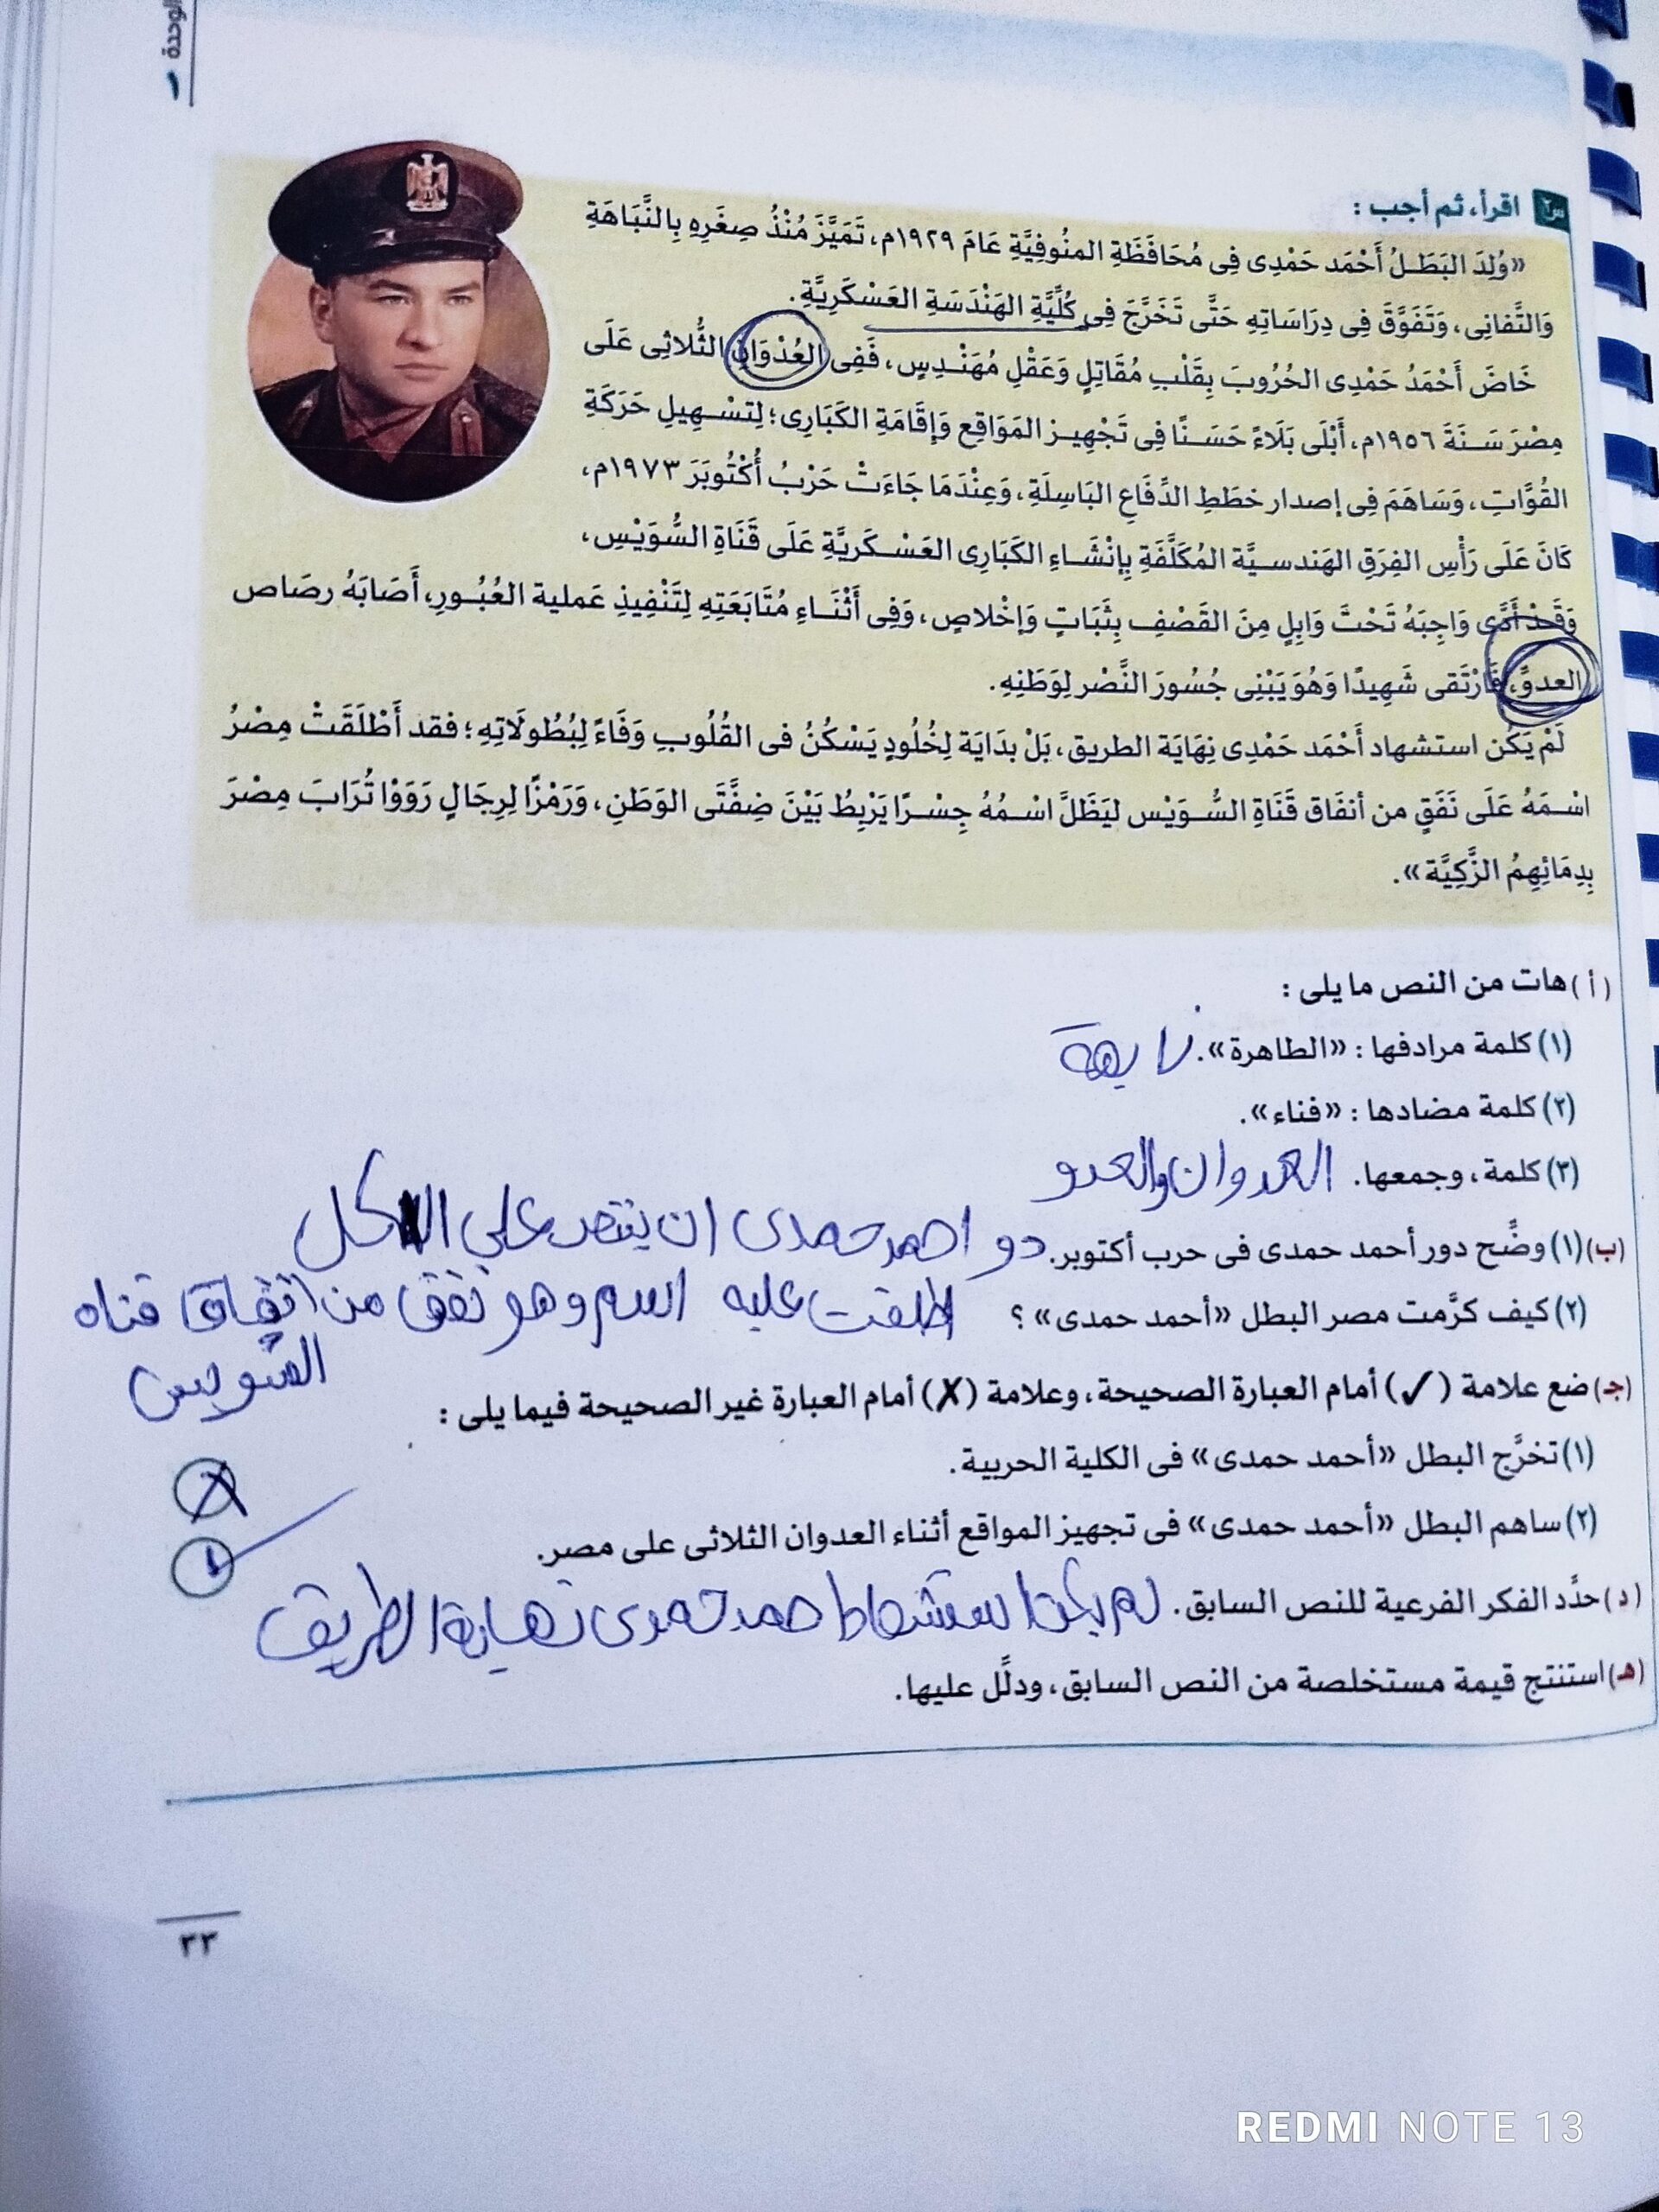 الوحدة ١
س٢ اقرأ، ثم أجب :
«وُلِدَ البَطَلُ أَحْمَد حَمْدِى فِى مُحَافَظَةِ المنُوفِيَّةِ عَامَ ١٩٢٩م، تَمَيَّزَ مُنْذُ صِغَرِهِ بِالنَّبَاهَةِ
وَالتَّفانِى، وَتَفَوَّقَ فِى دِرَاسَاتِهِ حَتَّى تَخَرَّجَ فِى كُلِّيَّةِ الهَنْدَسَةِ العَسْكَرِيَّةِ.
خَاضَ أَحْمَدُ حَمْدِى الحُرُوبَ بِقَلْبِ مُقَاتِلٍ وَعَقْلِ مُهَنْدِسٍ، فَفِى العُدْوَانِ الثُّلاثِى عَلَى
مِصْرَ سَنَةَ ١٩٥٦م، أَبْلَى بَلَاءً حَسَنًا فِى تَجْهِيزِ المَوَاقِعِ وَإِقَامَةِ الكَبَارِى؛ لِتسْهِيلِ حَرَكَةِ
القُوَّاتِ، وَسَاهَمَ فِى إصدار خطَطِ الدِّفَاعِ البَاسِلَةِ، وَعِنْدَمَا جَاءَتْ حَرْبُ أُكْتُوبَرَ ١٩٧٣م،
كَانَ عَلَى رَأْسِ الفِرَقِ الهَندسيَّة المُكَلَّفَةِ بِإنْشَاءِ الكَبَارِى العَسْكَريَّةِ عَلَى قَنَاةِ السُّوَيْسِ،
وَقَدْ أَدَّى وَاجِبَهُ تَحْتَ وَابِلٍ مِنَ القَصْفِ بِثَبَاتٍ وَإخْلاصٍ، وَفِى أَثْنَاءِ مُتَابَعَتِهِ لِتَنْفِيذِ عَملية العُبُورِ، أَصَابَهُ رصَاص
العدوِّ، فَارْتَقى شَهِيدًا وَهُوَ يَبْنِى جُسُورَ النَّصْر لِوَطَنِهِ.
لَمْ يَكُن استشهاد أَحْمَد حَمْدِى نِهَايَة الطريق، بَلْ بدَايَة لِخُلُودٍ يَسْكُنُ فى القُلُوبِ وَفَاءً لِبُطُولَاتِهِ؛ فقد أَطْلَقَتْ مِصْرُ
اسْمَهُ عَلَى نَفَقٍ من أنفَاق قَنَاةِ السُّوَيْس ليَظَلَّ اسْمُهُ جِسْرًا يَرْبِطُ بَيْنَ ضِفَّتَى الوَطَنِ، وَرَمْزًا لِرِجَالٍ رَوَوْا تُرَابَ مِصْرَ
بِدِمَائِهِمُ الزَّكِيَّة».
(أ) هات من النص ما يلى :
(١) كلمة مرادفها : «الطاهرة».
(٢) كلمة مضادها : «فناء».
(٣) كلمة، وجمعها. العدوان والعدو
(ب) (١) وضِّح دور أحمد حمدى فى حرب أكتوبر. دو احمد حمدى ان ينتصر على الكل
(٢) كيف كرَّمت مصر البطل «أحمد حمدى» ؟ اطلقت عليه اسم وهو نفق من انفاق قناه
السويس
(جـ) ضع علامة (✓) أمام العبارة الصحيحة، وعلامة (✗) أمام العبارة غير الصحيحة فيما يلى :
(١) تخرَّج البطل «أحمد حمدى» فى الكلية الحربية. ✗
(٢) ساهم البطل «أحمد حمدى» فى تجهيز المواقع أثناء العدوان الثلاثى على مصر. ✓
(د) حدِّد الفكر الفرعية للنص السابق. لم يكن احمد حمدى نهاية الطريق
(هـ) استنتج قيمة مستخلصة من النص السابق، ودلِّل عليها.
٣٣
REDMI NOTE 13